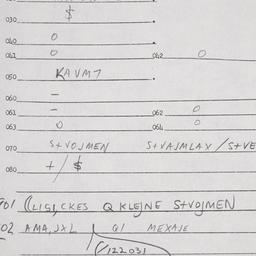 030. $
040. O
041. O 042. O
050. KAVMT
060. –
061. – 062. O
063. O 064. O
070. S+VOJMEN S+VAJMLAX / S+VE
080. + / $
701 KLEJNE S+VOJMEN
02 AMA, JXL Q1 MEXAJE
/122031